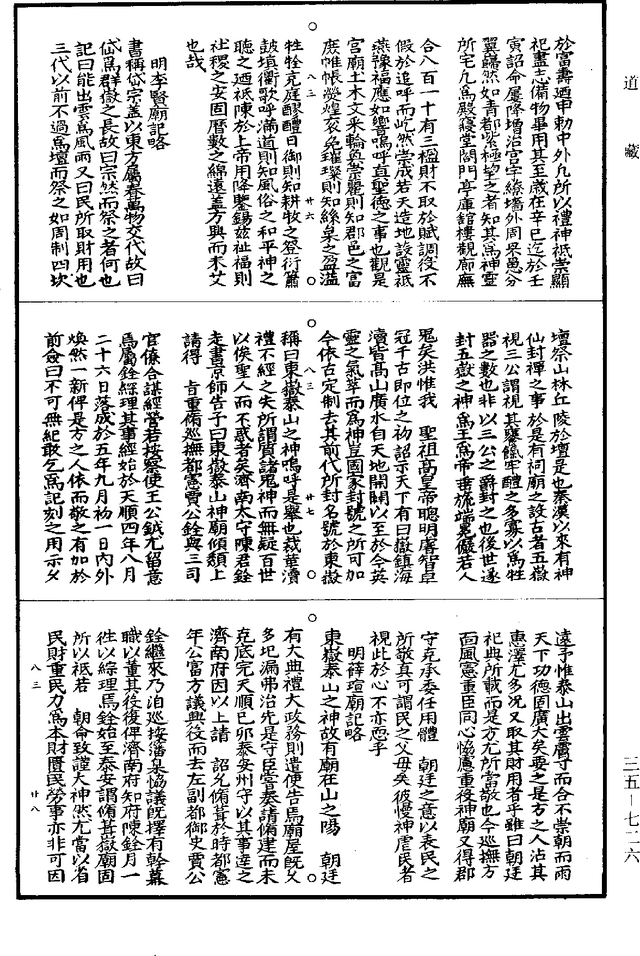 道藏
於富壽迺申勅中外凡所以禮神祇崇顯
祀晝志備物畢用其至嚴在辛巳迄於壬
寅詔命屢降增治宮宇繚墻外周罘罳分
翼巋然如青都紫極望之者知其爲神靈
所宅凡爲殿寢堂閤門亭庫舘樓觀廊廡
合八百一十有三楹財不取於賦調役不
假於追呼而屹然崇成若天造地設靈祇
燕豫福應如響嗚呼真聖德之事也觀是
宮廟土木文采輪奐崇麗則知郡邑之富
庶帷帳熒煌衮冕璀璨則知絲枲之盈溢
牲牷充庭醪醴日御則知耕牧之登衍簫
鼓塡衢歌呼滿道則知風俗之和平神之
聽之迺祇陳於上帝用降鑒錫茲祉福則
社稷之安固曆數之綿遠蓋方興而未艾
也哉
明李賢廟記略
書稱岱宗蓋以東方屬春萬物交代故曰
岱爲群嶽之長故曰宗然而祭之者何也
記曰能出雲爲風雨又曰民所取財用也
三代以前不過爲壇而祭之如周制四坎
八三
廿六
壇祭山林丘陵於壇是也秦漢以來有神
仙封禪之事於是有祠廟之設古者五嶽
視三公謂視其饔餼牢醴之多寡以爲牲
器之數也非以三公之爵封之也後世遂
封五嶽之神爲王爲帝垂旒端冕儼若人
鬼矣洪惟我 聖祖高皇帝聰明睿智卓
冠千古即位之初詔示天下有曰嶽鎮海
瀆皆高山廣水自天地開闢以至於今英
靈之氣萃而爲神豈國家封號之所可加
今依古定制去其前代所封名號於東嶽
稱曰東嶽泰山之神嗚呼是舉也裁革瀆
禮不經之失所謂質諸鬼神而無疑百世
以俟聖人而不惑者矣濟南太守陳君銓
走書京師告予曰東嶽泰山神廟傾頹上
請得 旨重脩巡撫都憲賈公銓與三司
官僚合謀經營若按察使王公鉞尤留意
焉屬銓綜理其事經始於天順四年八月
二十六日落成於五年九月初一日內外
煥然一新俾是方之人依而敬之有加於
前僉曰不可無紀敢乞爲記刻之用示久
八三
廿七
遠予惟泰山出雲膚寸而合不崇朝而雨
天下功德固廣大矣要之是方之人沾其
惠澤尤多況又取其財用者乎雖曰朝廷
祀典所載而是方尤所當敬也今巡撫方
面風憲重臣同心協慮重後神廟又得郡
守克承委任用體 朝廷之意以表民之
所敬真可謂民之父母矣彼慢神虐民者
視此於心不亦恧乎
明薛瑄廟記略
東嶽泰山之神故有廟在山之陽 朝廷
有大典禮大政務則遣使告焉廟屋既久
多圮漏弗治先是守臣嘗奏請脩建而未
克底完天順己卯泰安州守以其事達之
濟南府因以上請 詔允脩葺於時都憲
年公富方議興役而去左副都御史賈公
銓繼來乃洎巡按藩臬恊議既擇有幹幕
職以董其役復俾濟南府知府陳銓月一
往以綜理焉銓始至泰安謂脩葺嶽廟固
所以祇若 朝命致謹大神然尤當以省
民財重民力爲本財匱民勞事亦非可因
八三
廿八
三五－七二六